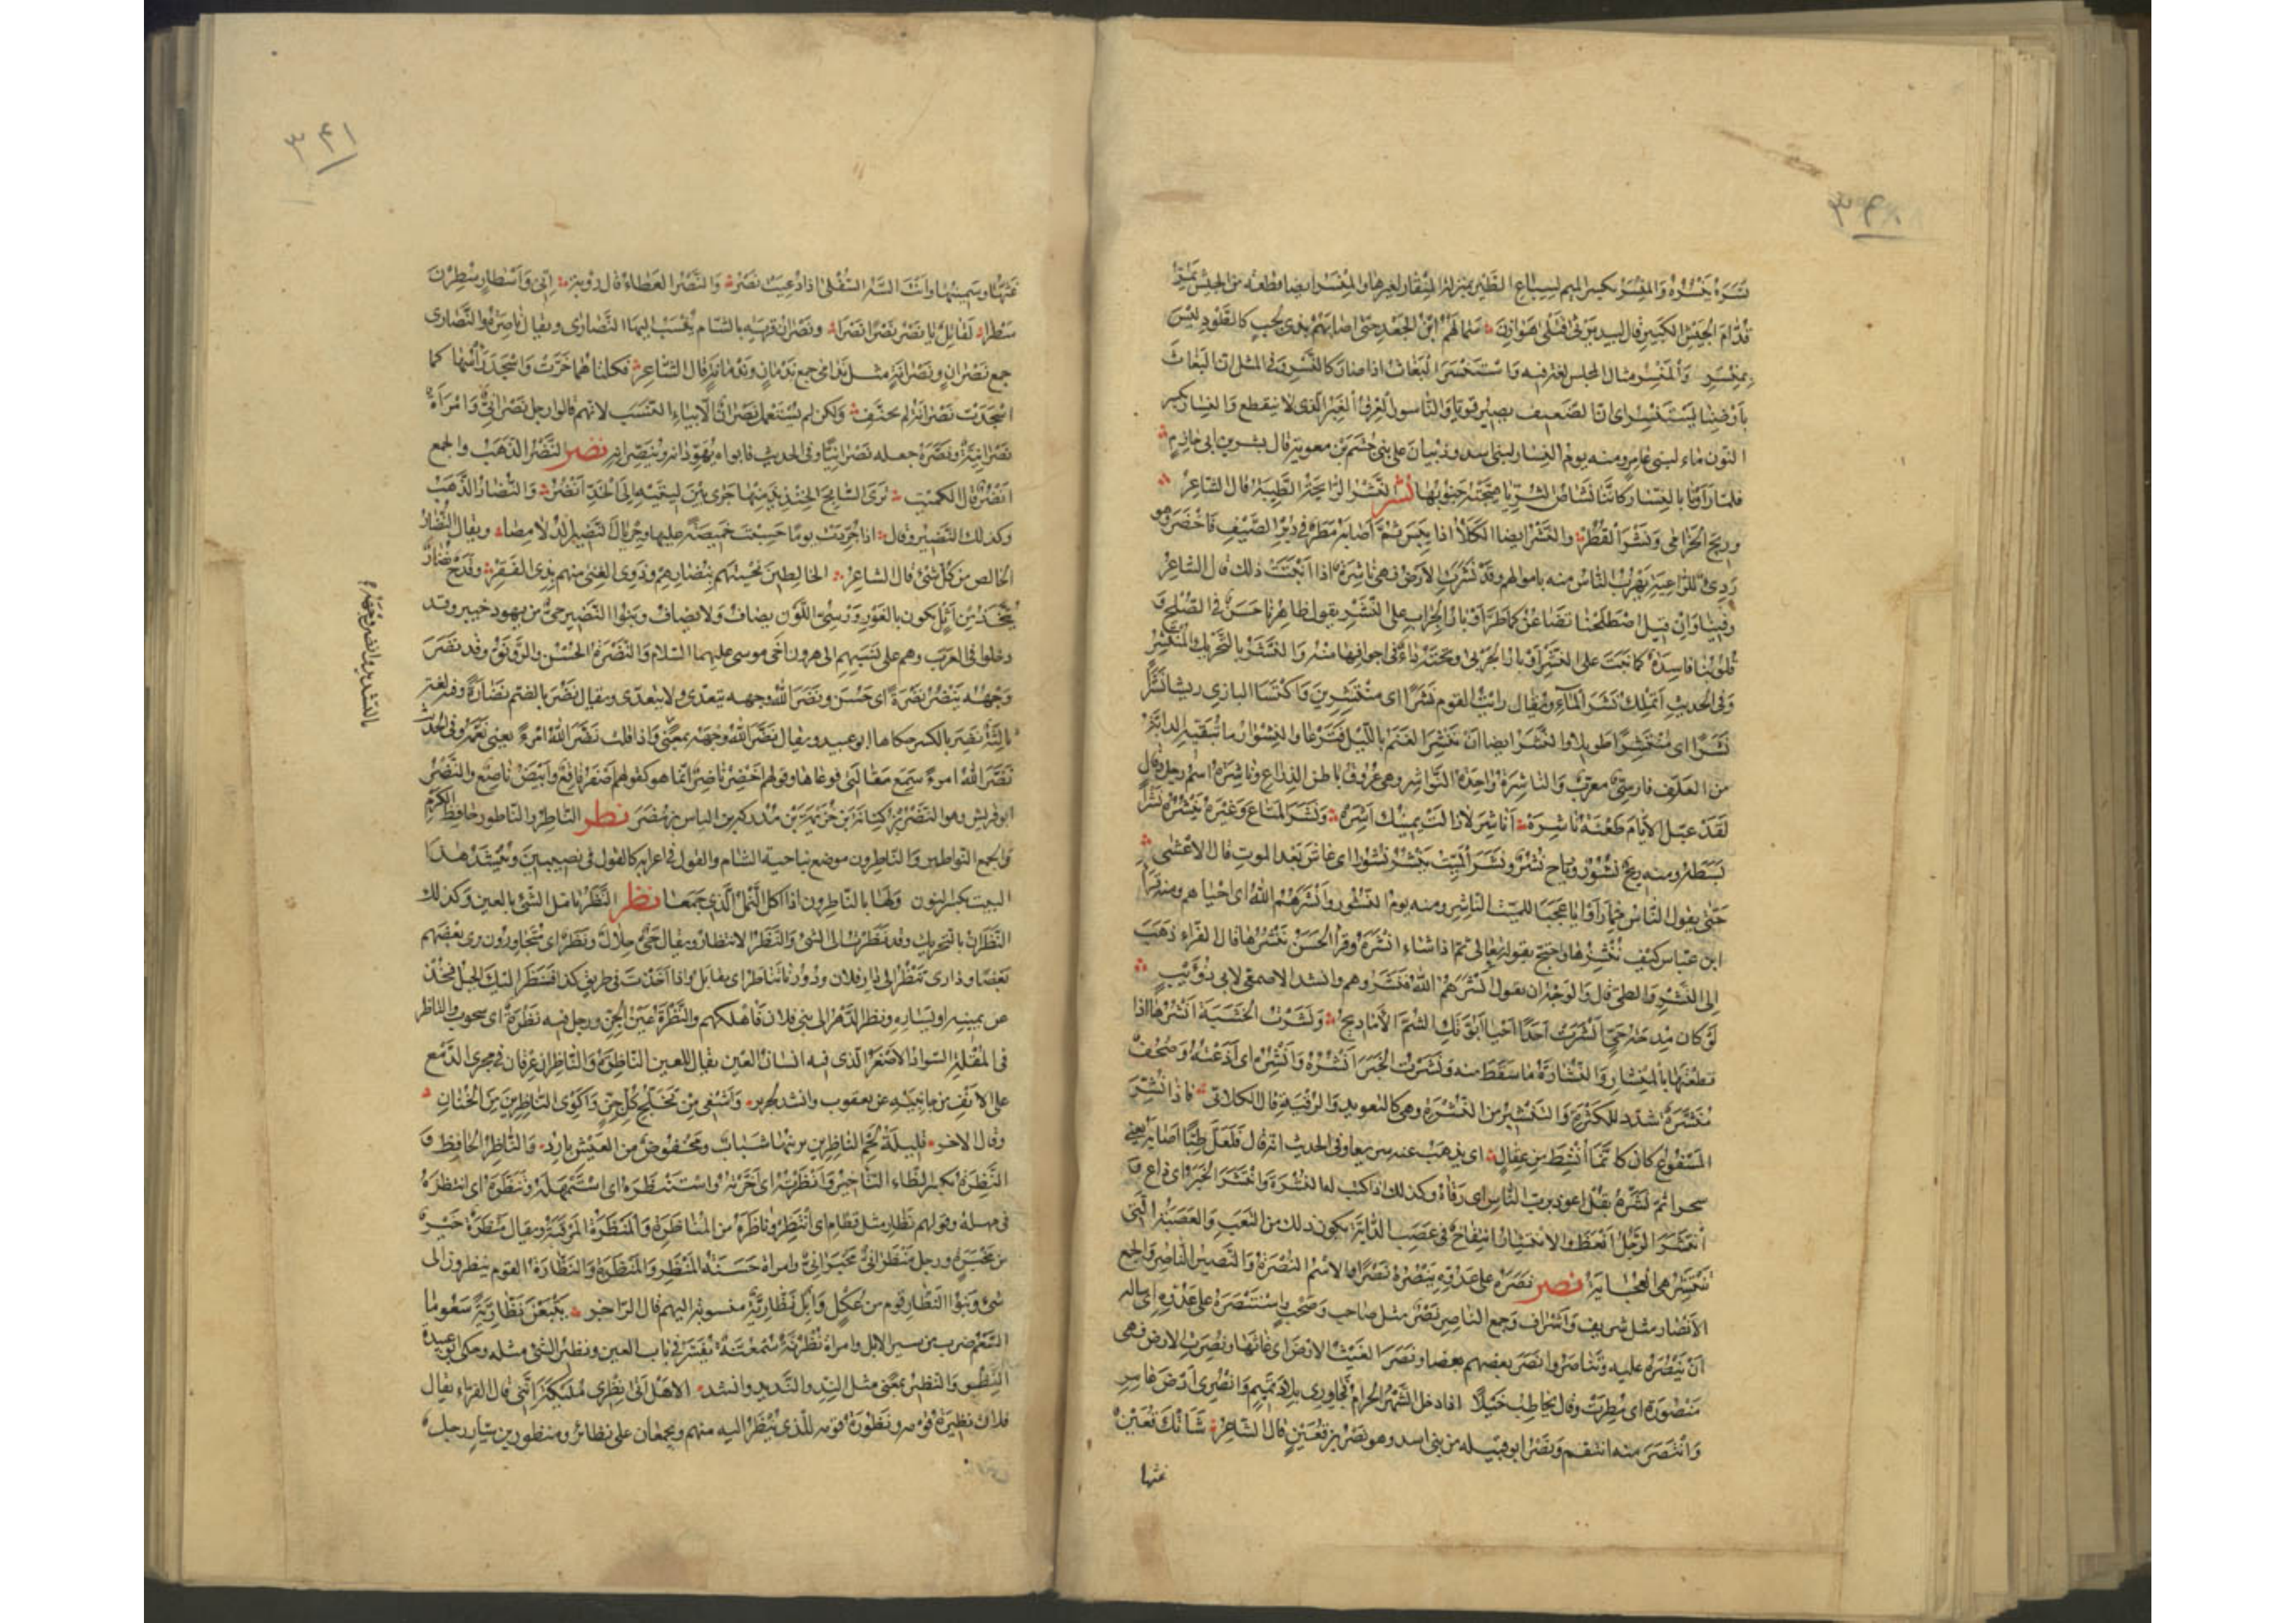 ۳۴۰
نسره ينسره والمنسر بكسر الميم لسباع الطير بمنزلة المنقار لغيرها والمنسر ايضا قطعة من الجيش تمر
قدام الجيش الكبير قال لبيد يرثى قتلى هوازن سمالهم ابن الجعد حتى اصابهم بذى لجب كالطود ليس
بمنسر والمنسر مثال المجلس لغة فيه واستنسر البغاث اذا صار كالنسر وفى المثل ان البغاث
بارضنا يستنسر اى ان الضعيف يصير قويا والناسور العرق الغبر الذى لا ينقطع والنسار بكسر
النون ماء لبنى عامر ومنه يوم النسار لبنى اسد وذبيان على بنى جشم بن معوية قال بشر بن ابى خازم
فلما راونا بالنسار كاننا نشاص الثريا هيجته جنوبها نشر النشر الرايحة الطيبة قال الشاعر
وريح الخزامى ونشر القطر والنشر ايضا الكلأ اذا يبس ثم اصابه مطر فى دبر الصيف فاخضر وهو
ردى للراعية يهرب الناس منه باموالهم وقد نشرت الارض فهى ناشرة اذا انبتت ذلك قال الشاعر
وفينا وان قيل اصطلحنا تضاغن كما طر اوبار الجراب على النشر يقول ظاهرنا حسن فى الصلح و
قلوبنا فاسدة كما نبت على النشر اوبار الجربى وتحته داء فى اجوافها منه والنشر بالتحريك المنتشر
وفى الحديث اتملك نشر الماء ويقال رايت القوم نشرا اى منتشرين واكتسا البازى ريشا نشرا
نشرا اى منتشرا طويلا والنشر ايضا ان تنتشر الغنم بالليل فترعا والنشوار ما تبقيه الدابة
من العلف فارسى معرب والناشرة واحدة النواشر وهى عروق باطن الذراع وناشرة اسم رجل وقال
لقد عيل الايام طعنة ناشرة اناشر لا زالت يمينك آشره ونشر المتاع وغيره ينشره نشرا
بسطه ومنه ريح نشور ورياح نشر ونشر الميت ينشر نشورا اى عاش بعد الموت قال الاعشى
حتى يقول الناس مما راوا يا عجبا للميت الناشر ومنه يوم النشور وانشرهم الله اى احياهم ومنه قرأ
ابن عباس كيف ننشزها واحتج بقوله تعالى ثم اذا شاء انشره وقرا الحسن ننشرها قال الفراء ذهب
الى النشر والطى قال والوجه ان يقول انشرهم الله فنشروا هم وانشد الاصمعى لابى ذؤيب
لو كان مدحة حى انشرت احدا احيا ابوتك الشم الاماديح ونشرت الخشبة انشرها اذا
قطعتها بالمنشار والنشارة ما سقط منه ونشرت الخبر انشره وانشره اى اذعته وصحف
منشرة شدد للكثرة والتنشير من النشرة وهى كالتعويذ والرقية قال الكلابى فاذا نشر
المسفوع كان كانما انشط من عقال اى يذهب عنه سريعا وفى الحديث انه قال فلعل طبا اصابه يعنى
سحرا ثم نشره بقل اعوذ برب الناس اى رقاه وكذلك اذا كتب له النشرة وانتشر الخبر اى ذاع و
انتشر الرجل انعظ والانتشار انتفاخ فى عصب الدابة يكون ذلك من التعب والعصبة التى
تنتشر هى العجاية نصر نصره على عدوه ينصره نصرا والاسم النصرة والنصير الناصر والجمع
الانصار مثل شريف واشراف وجمع الناصر نصر مثل صاحب وصحب واستنصره على عدوه اى ساله
ان ينصره عليه وتناصروا نصر بعضهم بعضا ونصر الغيث الارض اى غاثها ونصرت الارض فهى
منصورة اى مطرت وقال يخاطب خيلا اذا دخل الشهر الحرام فجاوزى بلاد تميم وانصرى ارض عامر
وانتصر منه انتقم ونصر ابو قبيلة من بنى اسد وهو نصر بن قعين قال الشاعر شأتك قعين
غثها
۳۴۱
غثها وسمينها وانت السه السفلى اذا دعيت نصر والنصر العطاء قال روبة انى واسطار سطرن
سطرا لقائل يا نصر نصرا نصرا ونصران قرية بالشام ينسب اليها النصارى ويقال ناصرة والنصارى
جمع نصران ونصرانة مثل ندامى جمع ندمان وندمانة قال الشاعر فكلتاهما خرت واسجد راسها كما
اسجدت نصرانة لم تحنف ولكن لم يستعمل نصران الا بياء النسب لانهم قالوا رجل نصرانى وامراة
نصرانية ونصره جعله نصرانيا وفى الحديث فابواه يهودانه وينصرانه نضر النضر الذهب والجمع
انضر قال الكميت ترى السابح الخنذيذ منها كانما جرى بين ليتيه الى الخد انضر والنضار الذهب
وكذلك النضير وقال اذا جردت يوما حسبت خميصة عليها وجريال النضير الدلامصا ويقال النضار
الخالص من كل شى قال الشاعر الخالطين نحيتهم بنضارهم وذوى الغنى منهم بذى الفقر وقدح نضار
يتخذ من اثل يكون بالغور ورسى اللون يضاف ولا يضاف وبنوا النضير حى من يهود خيبر وقد
دخلوا فى العرب وهم على نسبهم الى هرون اخى موسى عليهما السلام والنضرة الحسن والرونق وقد نضر
وجهه ينضر نضرة اى حسن ونضر الله وجهه يتعدى ولا يتعدى ويقال نضر بالضم نضارة وفيه لغة
ثالثة نضر بالكسر حكاها ابو عبيد ويقال نضر الله وجهه بمعنى واذا قلت نضر الله امرءً يعنى نعمه وفى الحديث
نضر الله امرءً سمع مقالتى فوعاها وقولهم اخضر ناضر انما هو كقولهم اصفر فاقع وابيض ناصع والنضر
ابو قريش وهو النضر بن كنانة بن خزيمة بن مدركة بن الياس بن مضر نطر الناطر والناطور حافظ الكرم
والجمع النواطير والناطرون موضع بناحية الشام والقول فى اعرابه كالقول فى نصيبين وينشد هذا
البيت بكسر النون ولها بالناطرون اذا اكل النمل الذى جمعا نظر النظر تامل الشى بالعين وكذلك
النظران بالتحريك وقد نظرت الى الشى والنظر الانتظار ويقال حى حلال ونظر اى متجاورون يرى بعضهم
بعضا ودارى تنظر الى دار فلان ودورنا تناظر اى تقابل واذا اخذت فى طريق كذا فنظر اليك الجبل فخذ
عن يمينه او يساره ونظر الدهر الى بنى فلان فاهلكهم والنظرة عين الجن ورجل فيه نظرة اى شحوب والناظر
فى المقلة السواد الاصغر الذى فيه انسان العين يقال للعين الناظرة والناظران عرقان فى مجرى الدمع
على الانف من جانبيه عن يعقوب وانشد لجرير واشفى من تخلج كل جن واكوى الناظرين من الخنان
وقال الاخر قليلة لحم الناظرين يزينها شباب ومخفوض من العيش بارد والناظر الحافظ و
النظرة بكسر الظاء التاخير وانظرته اى اخرته واستنظره اى استمهله وتنظره اى انتظره
فى مهلة وقولهم نظار مثل قطام اى انتظر وناظره من المناظرة والمنظرة المرقبة ويقال منظره خير
من مخبره ورجل منظرانى مخبرانى وامراة حسنة المنظر والمنظرة والنظارة القوم ينظرون الى
شى وبنوا النظار قوم من عكل وابل نظارية منسوبة اليهم قال الراجز يتبعن نظارية سعوما
السعم ضرب من سير الابل وامراة نظرنة سمعنة تفسر فى باب العين ونظير الشى مثله وحكى ابو عبيدة
النظر والنظير بمعنى مثل الند والنديد وانشد الا هل اتى نظرى مليكة اننى قال الفراء يقال
فلان نظيرة قومه ونظورة قومه للذى ينظر اليه منهم ويجمعان على نظائر ومنظور بن سيار رجل
بالتشديد وانضر وجهه